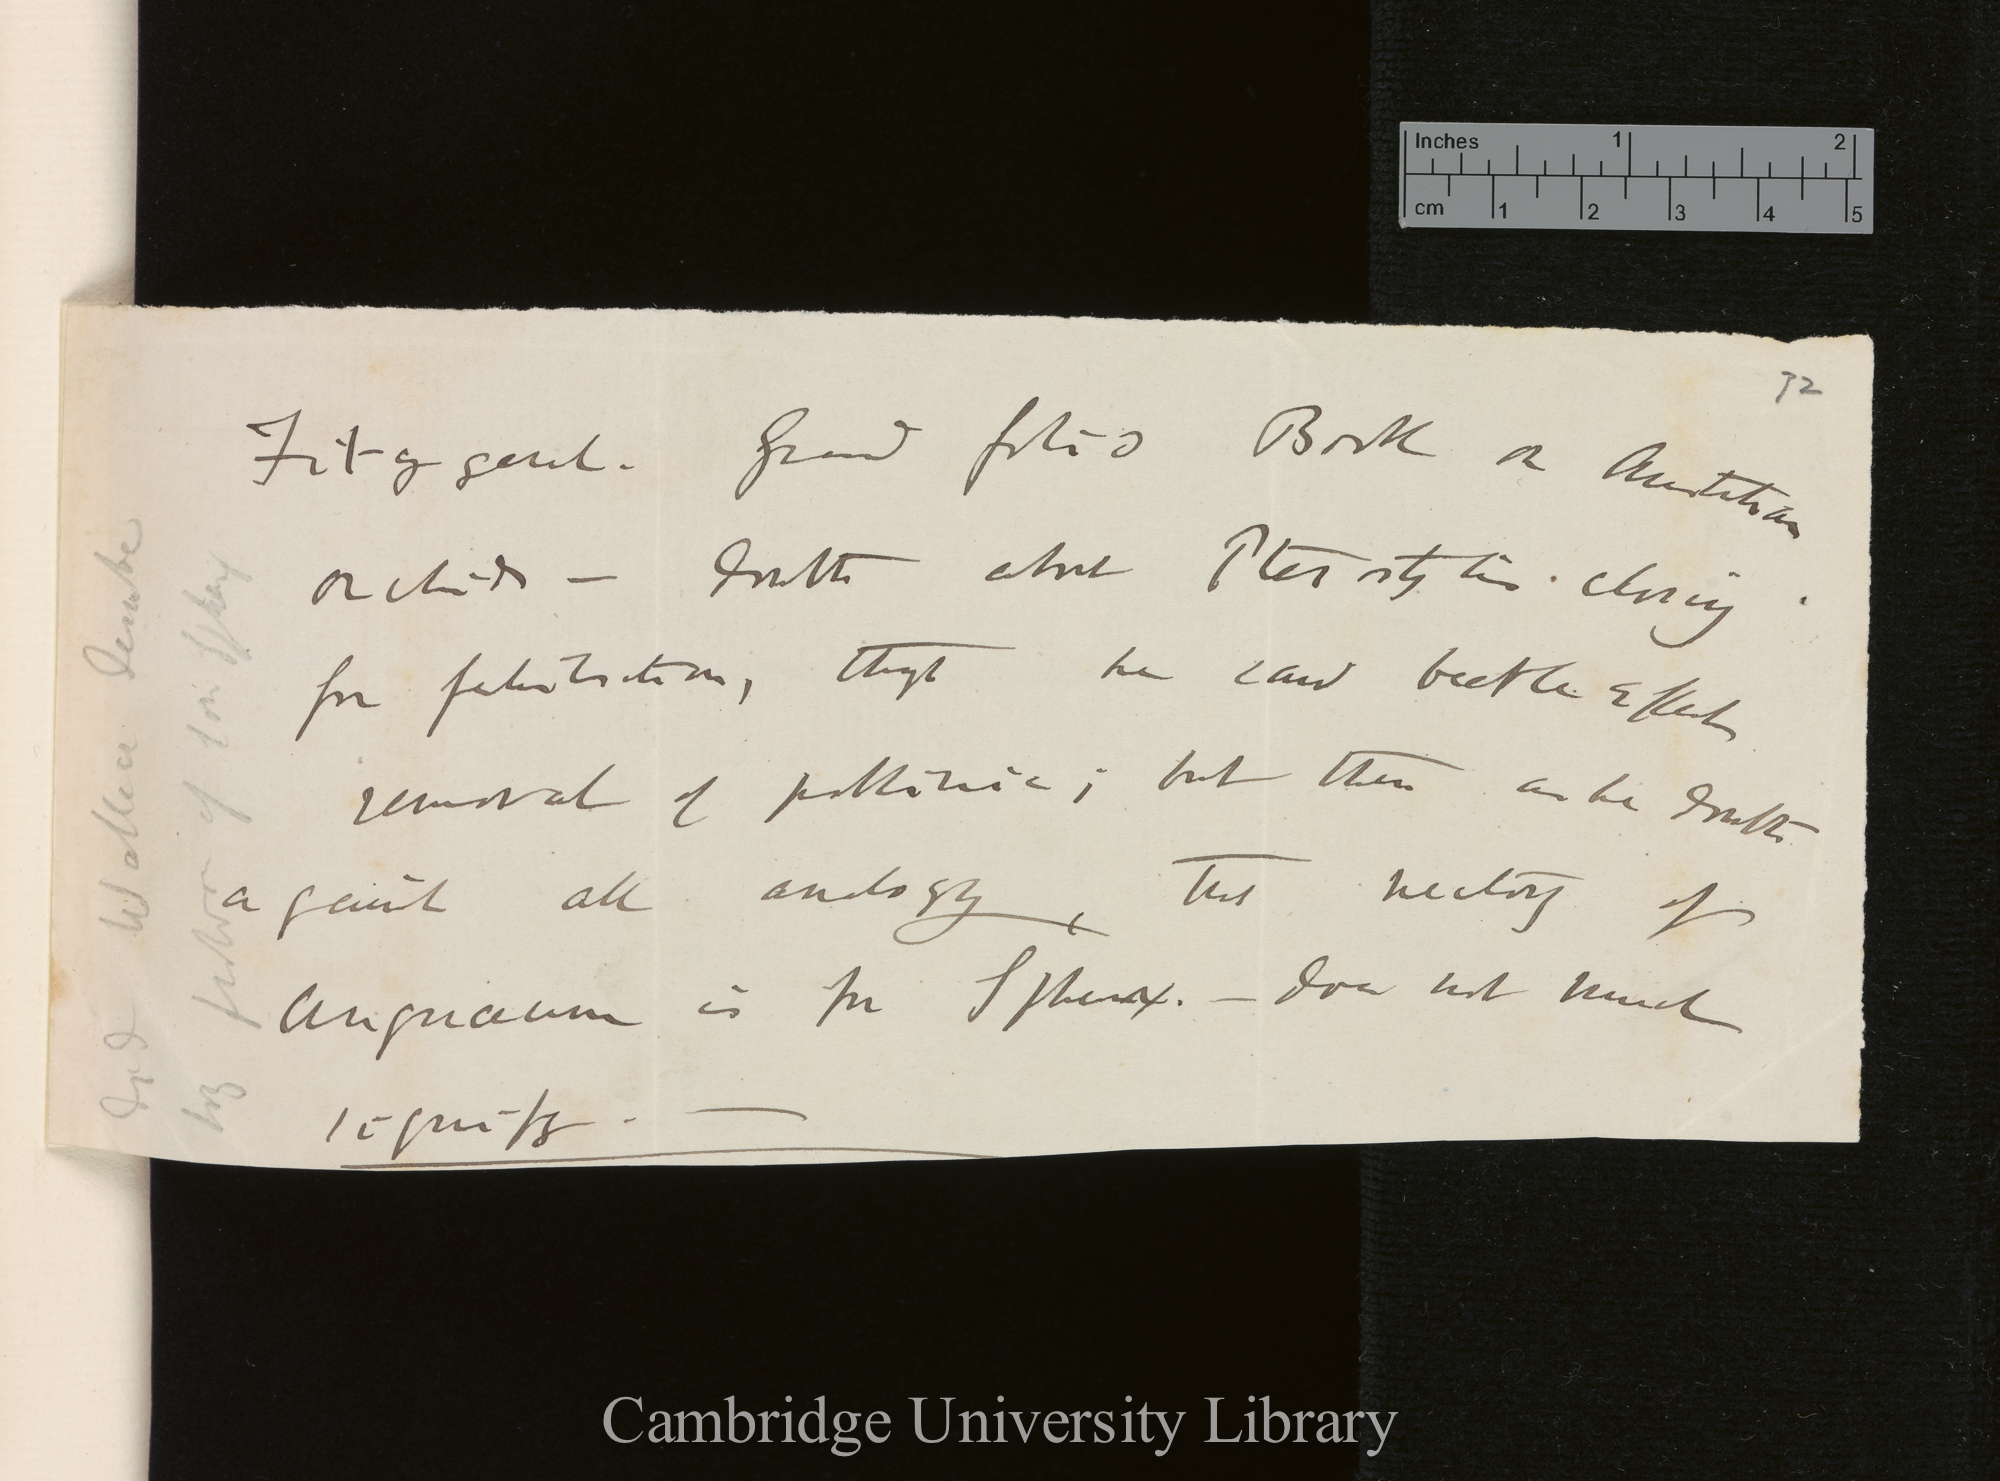 Inches 1 2
cm 1 2 3 4 5
32
Fitzgerald. Grand folio Book on Australian
orchids — doubts about Pterostylis closing.
for fertilisation, though he saw beetle effect
removal of pollinia; but then as he doubts
against all analogy, that nectary of
Angraecum is for Sphinx. — does not much
signify. —
Did Wallace describe
by
Cambridge University Library